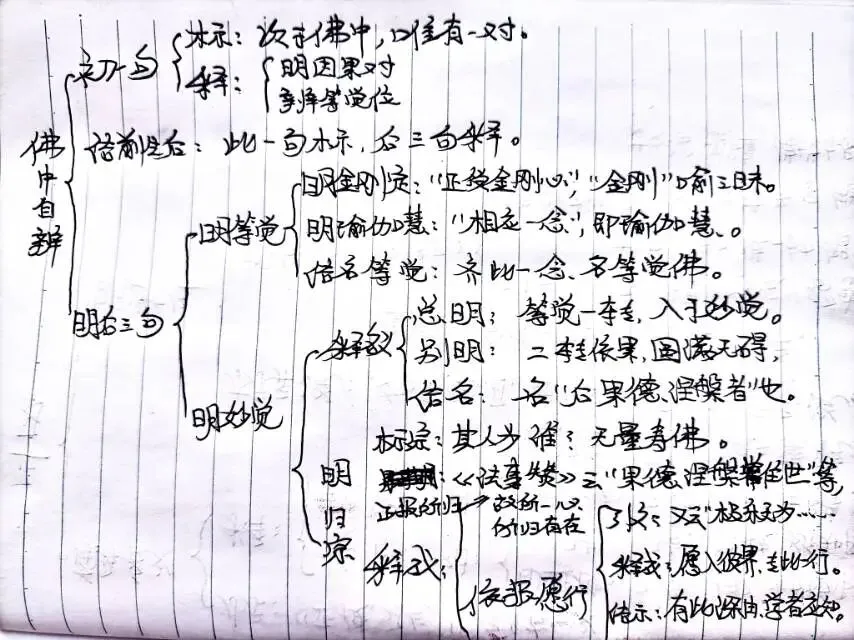 佛中自辨
初一句
标示：次示佛中，唯有一对。
释：
明因果对
判等觉位
结前生后：此一句标示，后三句释。
明后三句
明等觉
明金刚定：“正受金刚心”，“金刚”喻三昧。
明瑜伽慧：“相应一念”，即瑜伽慧。
结名等觉：齐此一念、名等觉佛。
明妙觉
释义
总明：等觉一转，入于妙觉。
别明：二转依果，圆满无碍，
结名：名“后果德涅槃者”也。
明归宗
标宗：其人为谁？无量寿佛。
明：《法事赞》云“果德涅槃常住世”等，
正报所归
故所一心
所归有在
释成：
依报愿行
引文：又云“极乐无为……
释成：愿入彼界，走此一行。
结示：有此深由，学者应知。